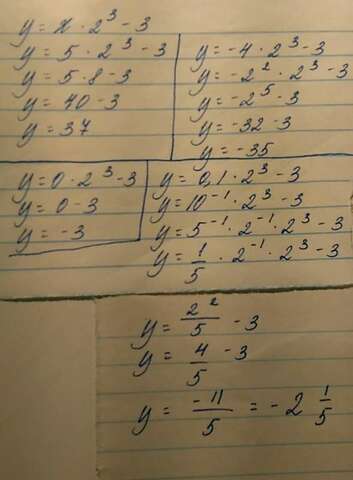 y = x · 2³ - 3
y = 5 · 2³ - 3
y = 5 · 8 - 3
y = 40 - 3
y = 37
y = -4 · 2³ - 3
y = -2² · 2³ - 3
y = -2⁵ - 3
y = -32 - 3
y = -35
y = 0 · 2³ - 3
y = 0 - 3
y = -3
y = 0,1 · 2³ - 3
y = 10⁻¹ · 2³ - 3
y = 5⁻¹ · 2⁻¹ · 2³ - 3
y = 1/5 · 2⁻¹ · 2³ - 3
y = 2²/5 - 3
y = 4/5 - 3
y = -11/5 = -2 1/5